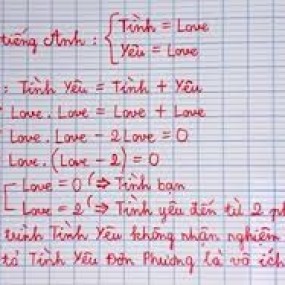 tiếng Anh : { Tình = Love
Yêu = Love
: Tình Yêu = Tình + Yêu
Love . Love = Love + Love
Love . Love - 2 Love = 0
Love . (Love - 2) = 0
[ Love = 0 (⇒ Tình bạn
Love = 2 (⇒ Tình yêu đến từ 2
trình Tình Yêu không nhận nghiệm
tỏ Tình Yêu Đơn Phương là vô ích